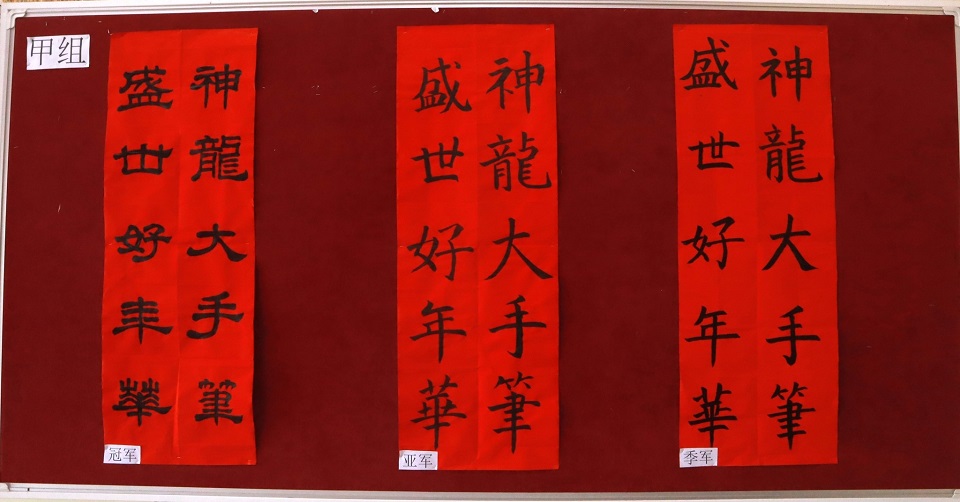 甲组
神龍大手筆
盛世好年華
冠军
神龍大手筆
盛世好年華
亚军
神龍大手筆
盛世好年華
季军